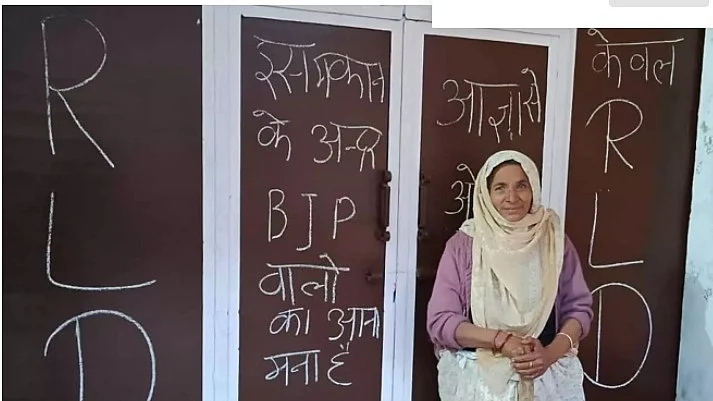 R
L
D
इस मकान
के अन्दर
BJP
वालो
का आना
मना है
आज्ञा से
ओ
केवल
R
L
D